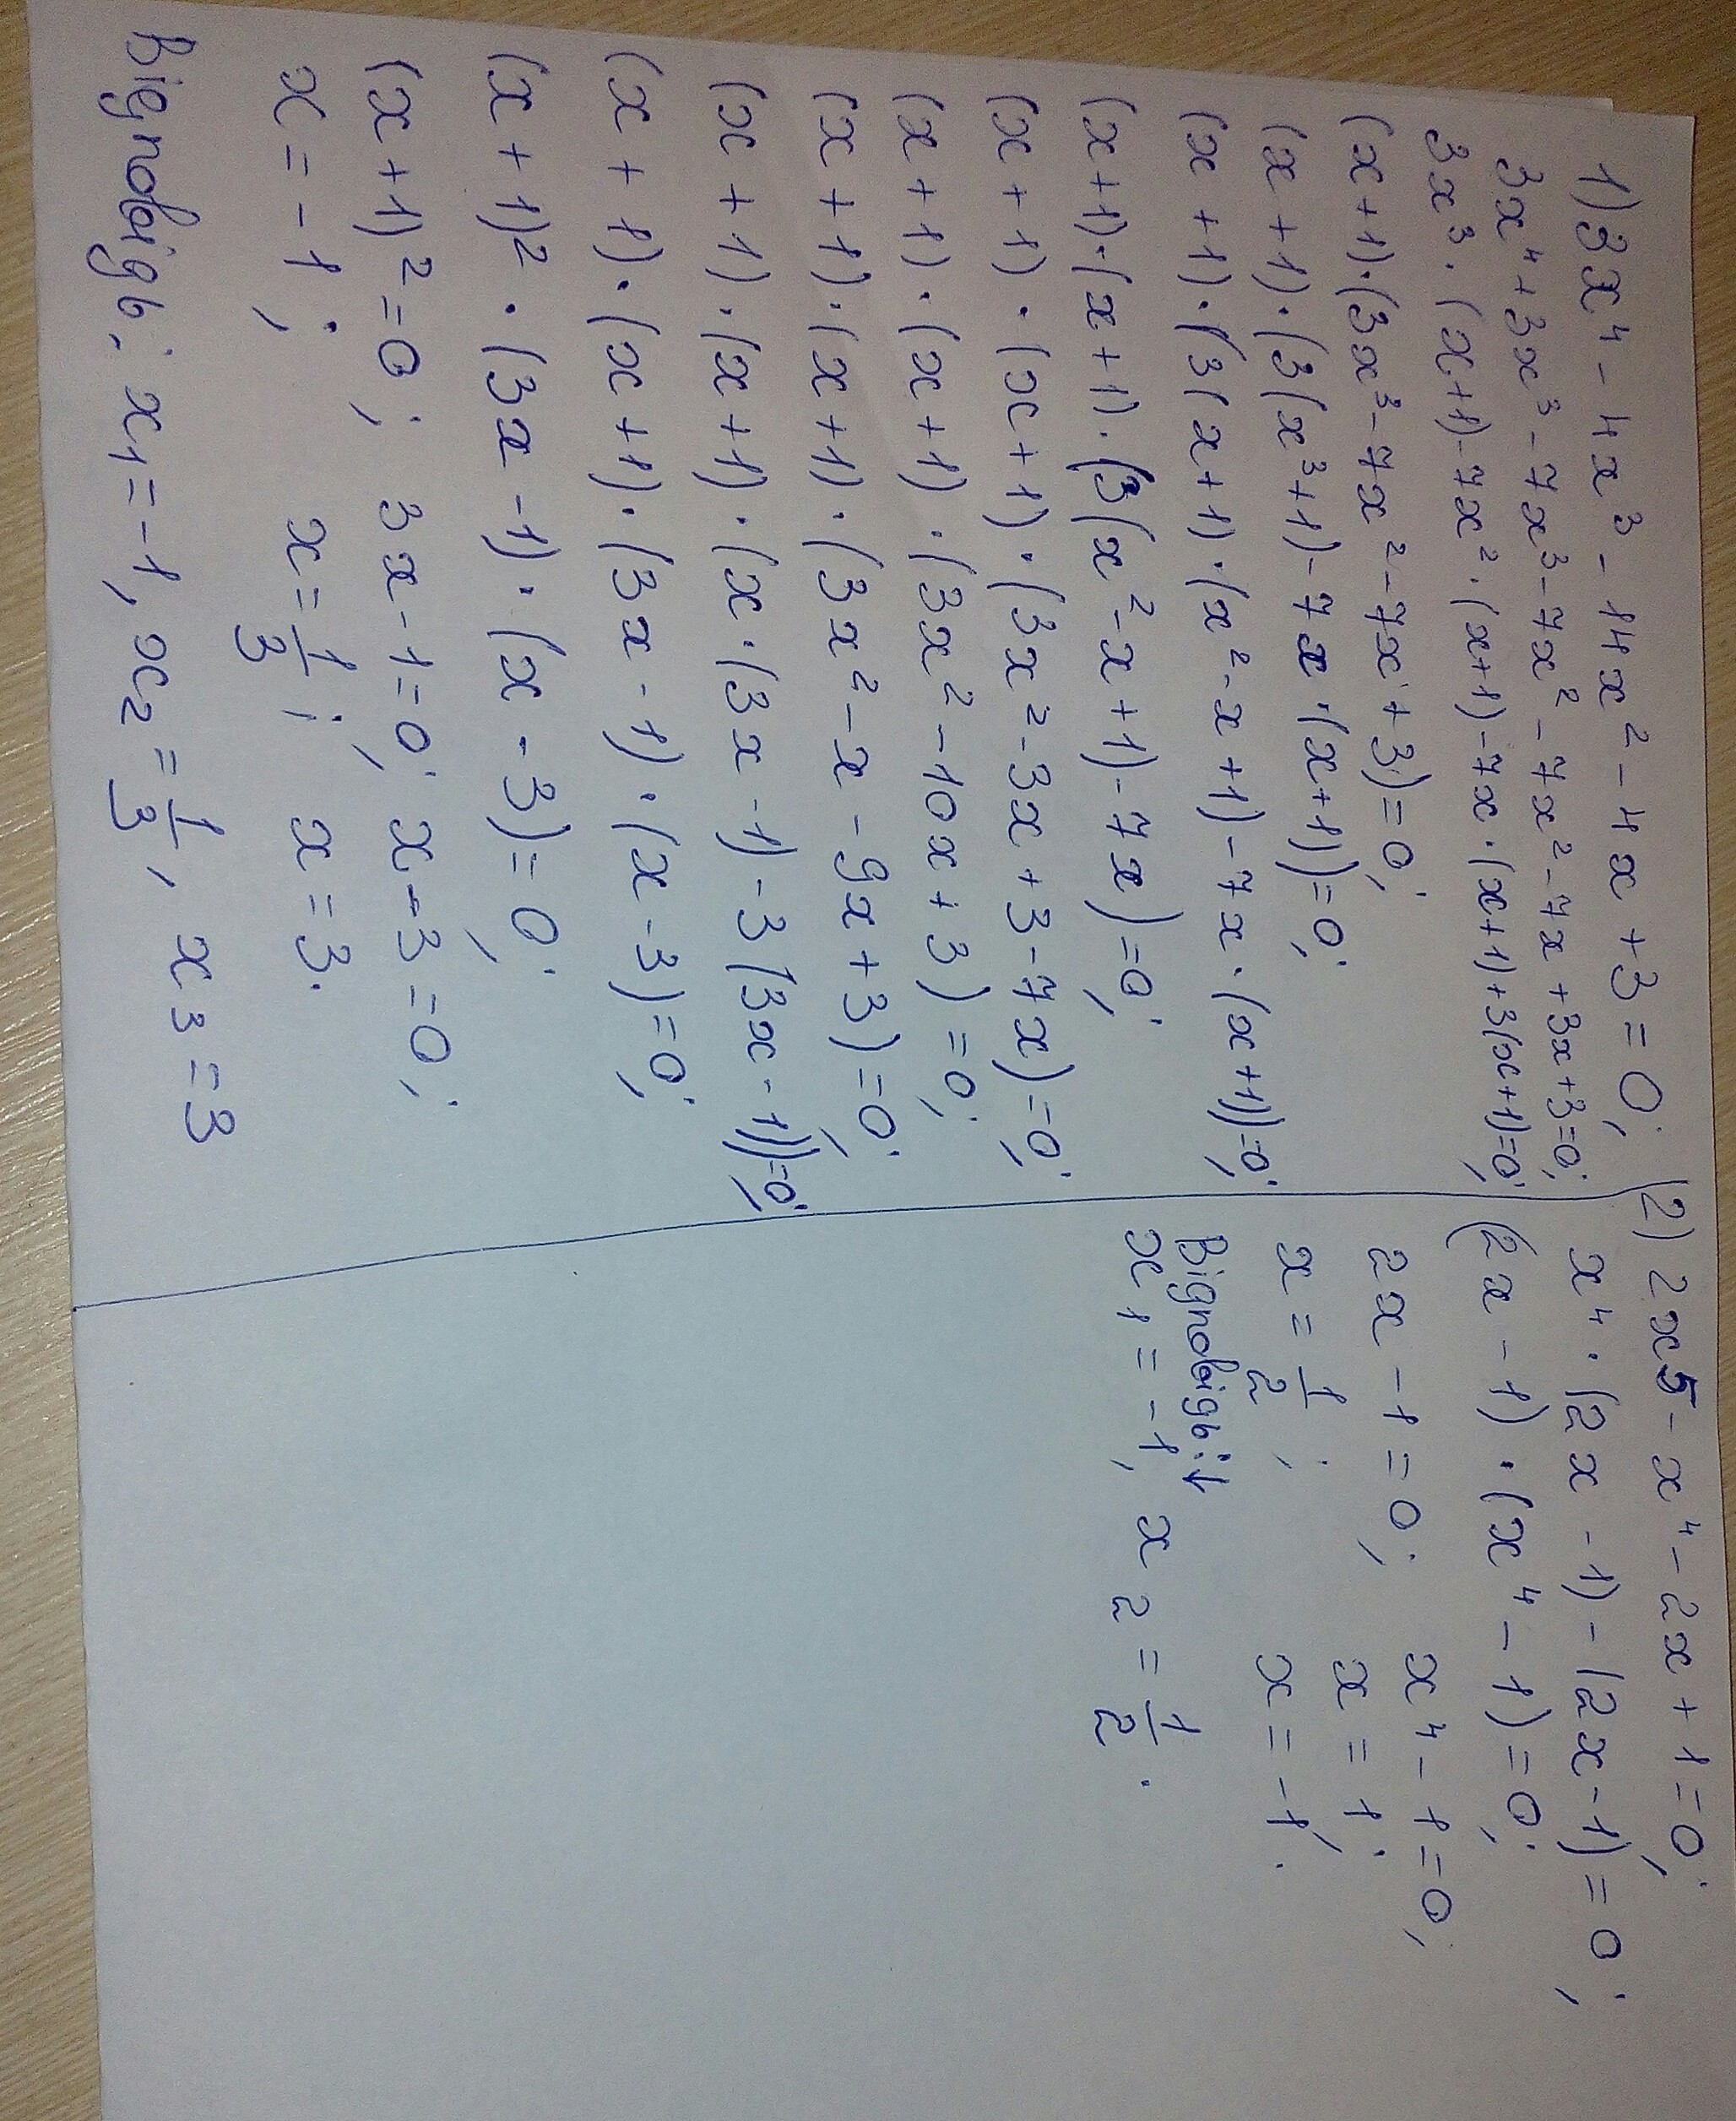 1) 3x⁴ - 4x³ - 14x² - 4x + 3 = 0;
3x⁴ + 3x³ - 7x³ - 7x² - 7x² - 7x + 3x + 3 = 0;
3x³ · (x+1) - 7x² · (x+1) - 7x · (x+1) + 3(x+1) = 0;
(x+1) · (3x³ - 7x² - 7x + 3) = 0;
(x+1) · (3(x³+1) - 7x · (x+1)) = 0;
(x+1) · (3(x+1) · (x² - x + 1) - 7x · (x+1)) = 0;
(x+1) · (x+1) · (3(x² - x + 1) - 7x) = 0;
(x+1) · (x+1) · (3x² - 3x + 3 - 7x) = 0;
(x+1) · (x+1) · (3x² - 10x + 3) = 0;
(x+1) · (x+1) · (3x² - x - 9x + 3) = 0;
(x+1) · (x+1) · (x · (3x - 1) - 3(3x - 1)) = 0;
(x+1) · (x+1) · (3x - 1) · (x - 3) = 0;
(x+1)² · (3x - 1) · (x - 3) = 0;
(x+1)² = 0; 3x - 1 = 0; x - 3 = 0;
x = -1; x = 1/3; x = 3.
Відповідь: x₁ = -1, x₂ = 1/3, x₃ = 3
2) 2x5 - x⁴ - 2x + 1 = 0;
x⁴ · (2x - 1) - (2x - 1) = 0;
(2x - 1) · (x⁴ - 1) = 0;
2x - 1 = 0; x⁴ - 1 = 0;
x = 1/2; x = 1;
x = -1.
Відповідь: ↓
x₁ = -1, x₂ = 1/2.